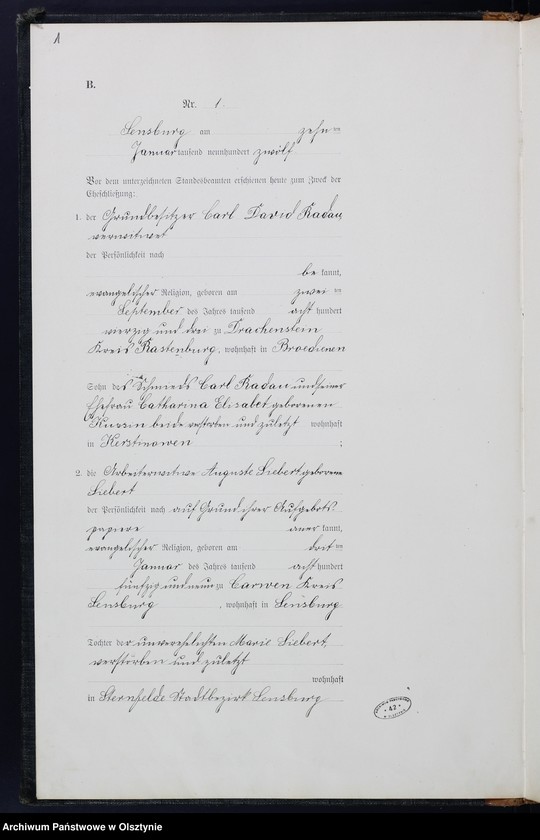 1
B.
Nr. 1.
Sensburg am zehn ten
Januar tausend neunhundert zwölf
Vor dem unterzeichneten Standesbeamten erschienen heute zum Zweck der
Eheschließung:
1. der Grundbesitzer Carl David Radau,
verwitwet
der Persönlichkeit nach
be kannt,
evangelischer Religion, geboren am zwei ten
September des Jahres tausend acht hundert
vierzig und drei zu Drachenstein
Kreis Rastenburg, wohnhaft in Broedienen
Sohn des Schmieds Carl Radau und seiner
Ehefrau Catharina Elisabet geborenen
Kussin beide verstorben und zuletzt wohnhaft
in Kerstinowen ;
2. die Arbeiterwitwe Auguste Siebert geborene
Siebert
der Persönlichkeit nach auf Grund ihrer Aufgebots
papiere aner kannt,
evangelischer Religion, geboren am ten
Januar des Jahres tausend acht hundert
fünfzig und neun zu Carwen Kreis
Sensburg , wohnhaft in Sensburg
Tochter der unverehelichten Marie Siebert,
verstorben und zuletzt
wohnhaft
in Sternfelde Stadtbezirk Sensburg
42
Archiwum Państwowe w Olsztynie